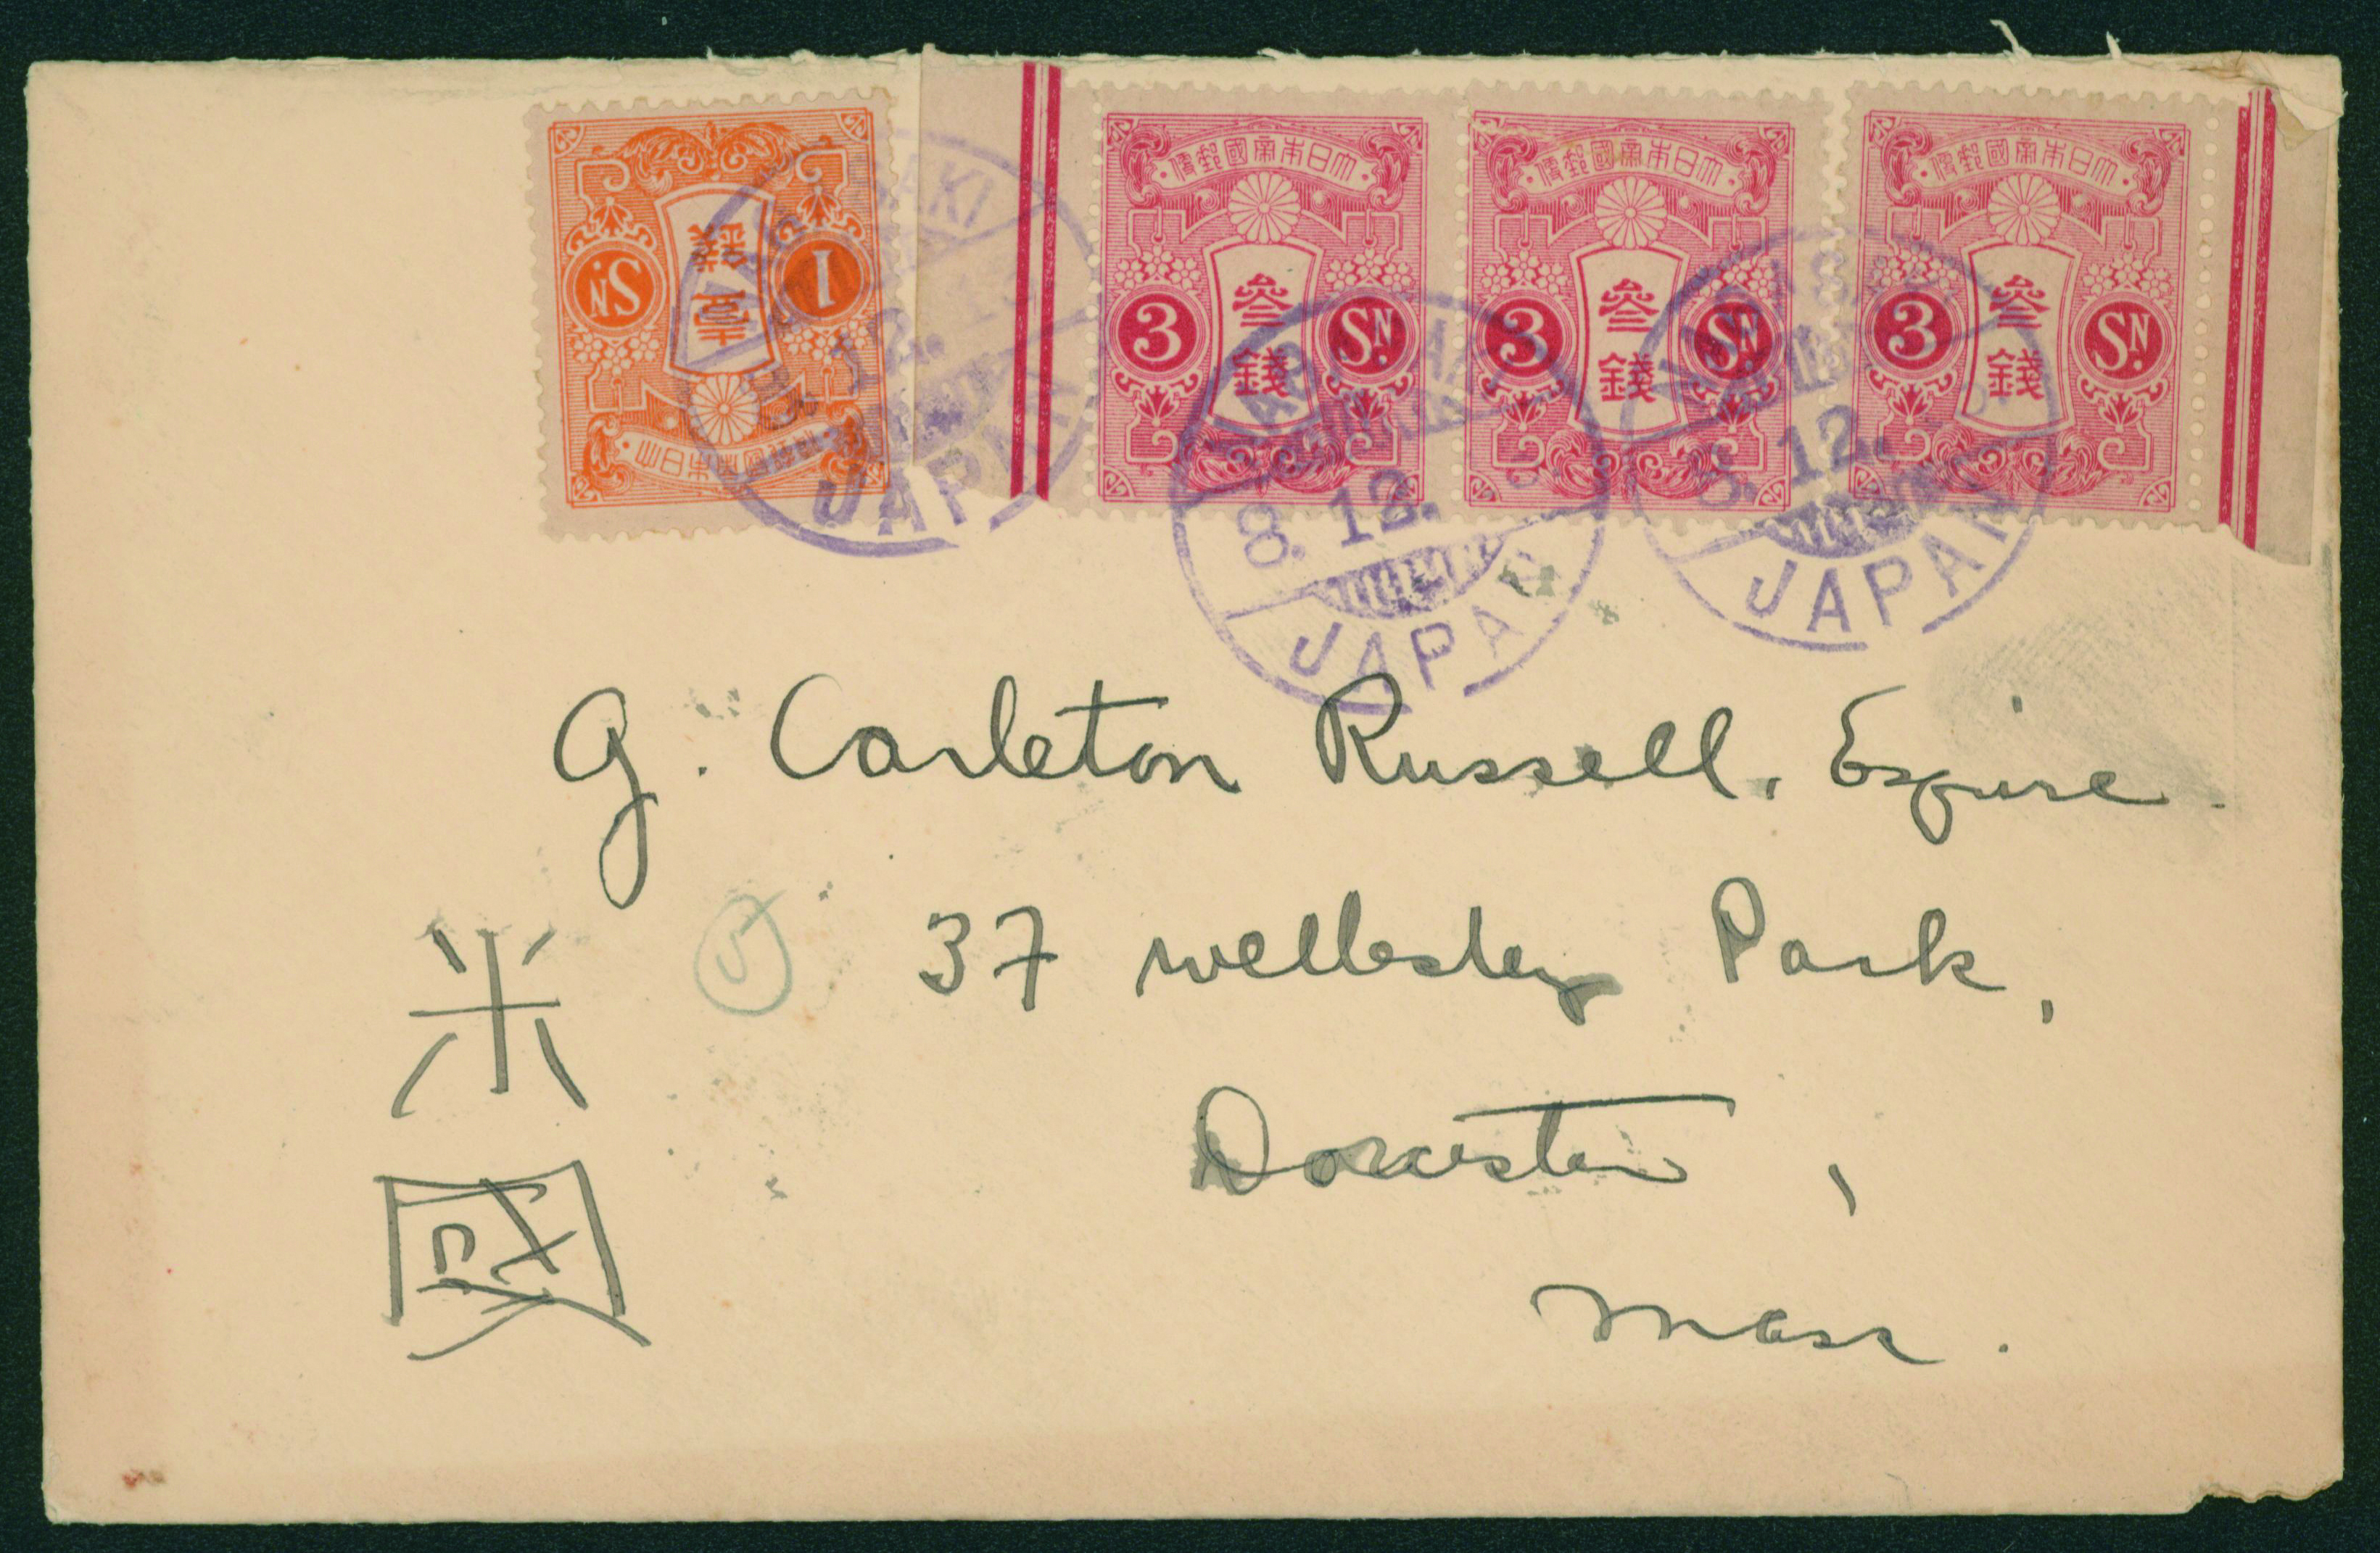 大日本帝國郵便
壹錢
1
SN.
大日本帝國郵便
3
参錢
SN.
大日本帝國郵便
3
参錢
SN.
大日本帝國郵便
3
参錢
SN.
12.
JAPAN
8. 12.
JAPAN
8. 12.
JAPAN
G. Carleton Russell, Esquire.
5
37 Wellesley Park,
Dorcester,
Mass.
米
國